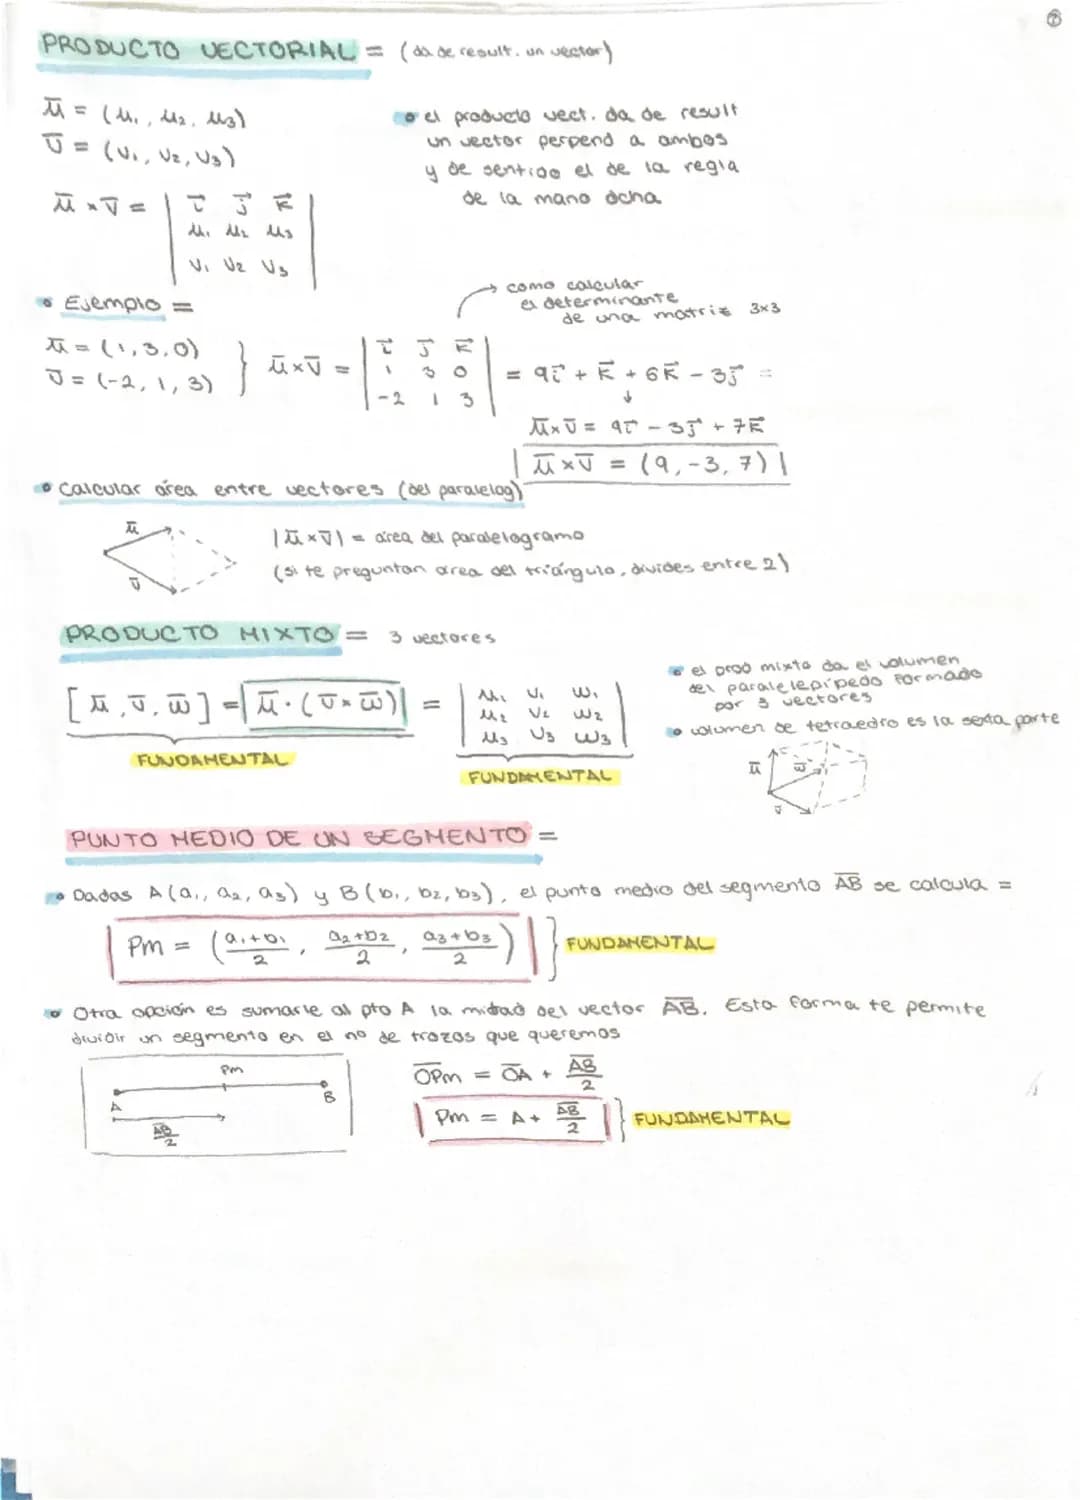 ②
PRODUCTO VECTORIAL = (da de result. un vector)
u̅ = (u₁, u₂, u₃)
v̅ = (v₁, v₂, v₃)
u̅ × v̅ = | i⃗ j⃗ k⃗ |
| u₁ u₂ u₃ |
| v₁ v₂ v₃ |
• el producto vect. da de result
un vector perpend a ambos
y de sentido el de la regla
de la mano dcha
• Ejemplo =
→ como calcular
el determinante
de una matriz 3x3
u̅ = (1, 3, 0)
v̅ = (-2, 1, 3)
} u̅×v̅ = | i⃗ j⃗ k⃗ |
| 1 3 0 |
| -2 1 3 |
= 9i⃗ + k⃗ + 6k⃗ - 3j⃗ =
↓
u̅×v̅ = 9i⃗ - 3j⃗ + 7k⃗
u̅×v̅ = (9, -3, 7)
• Calcular área entre vectores (del paralelog)
u̅
v̅
|u̅×v̅| = área del paralelogramo
(si te preguntan area del triángulo, divides entre 2)
PRODUCTO MIXTO = 3 vectores
[u̅, v̅, w̅] = u̅ · (v̅ × w̅) = | u₁ v₁ w₁ |
| u₂ v₂ w₂ |
| u₃ v₃ w₃ |
FUNDAMENTAL
FUNDAMENTAL
• el prod mixto da el volumen
del paralelepípedo formado
por 3 vectores
• volumen de tetraedro es la sexta parte
u̅ w̅
v̅
PUNTO MEDIO DE UN SEGMENTO =
• Dadas A(a₁, a₂, a₃) y B(b₁, b₂, b₃), el punto medio del segmento A̅B̅ se calcula =
Pm = ( (a₁+b₁)/2 , (a₂+b₂)/2 , (a₃+b₃)/2 ) } FUNDAMENTAL
• Otra opción es sumarle al pto A la mitad del vector A̅B̅. Esta forma te permite
dividir un segmento en el nº de trozos que queremos
Pm
A
B
A̅B̅/2
O̅P̅m̅ = O̅A̅ + A̅B̅/2
Pm = A + A̅B̅/2 } FUNDAMENTAL